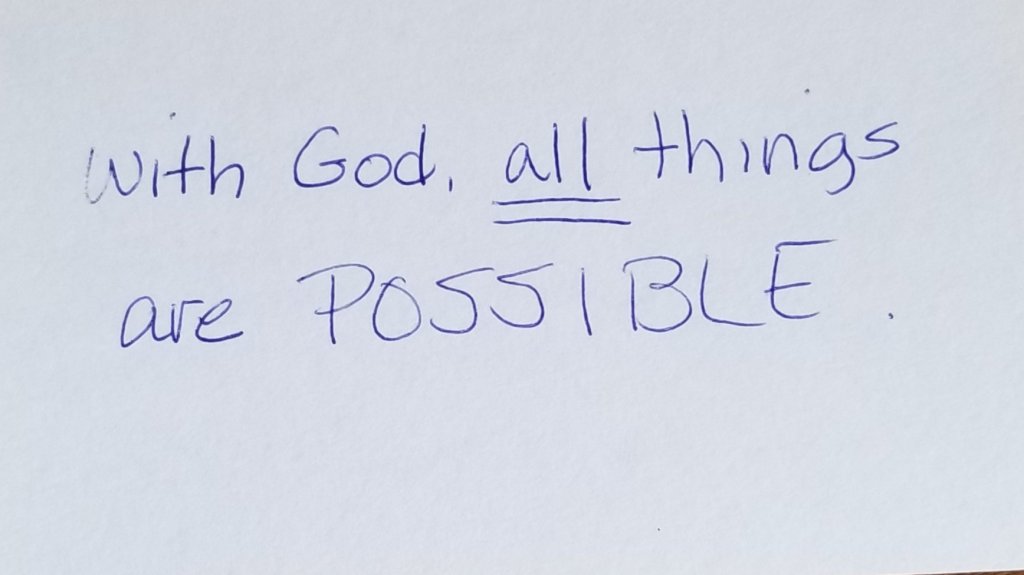 with God, all things
are POSSIBLE.